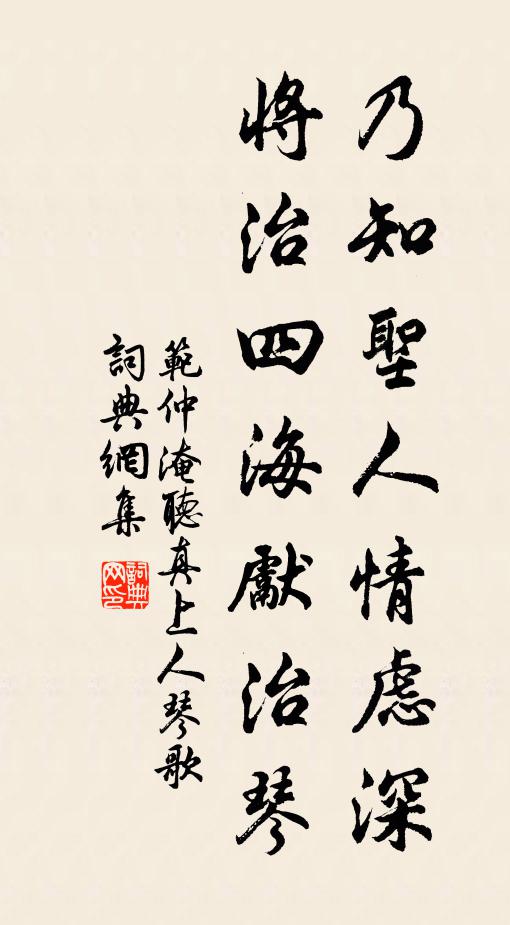 乃知聖人情慮深
將治四海獻治琴
範仲淹聽真上人琴歌
詞典網集
詞典
网印